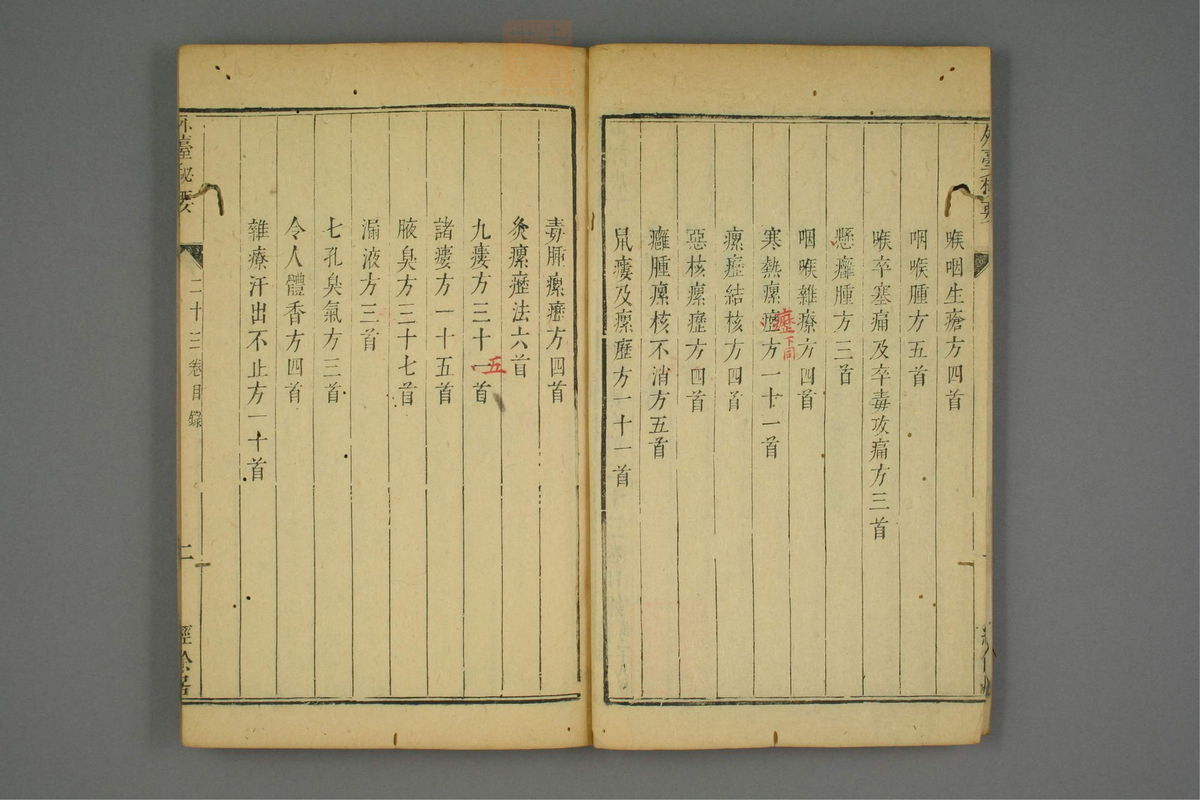 喉咽生瘡方四首
咽喉腫方五首
喉卒塞痛及卒毒攻痛方三首
懸癰腫方三首
咽喉雜療方四首
寒熱瘰癧方一十一首
癧下同
瘰癧結核方四首
惡核瘰癧方四首
癰腫瘰核不消方五首
鼠瘻及瘰歷方十一首
毒腫瘰癧方四首
灸瘰癧法六首
九瘻方三十一首
五
諸瘻方一十五首
腋臭方三十七首
漏液方三首
七孔臭氣方三首
令人體香方四首
雜療汗出不止方一十首
外臺秘要
二十三卷目錄
二
經餘居